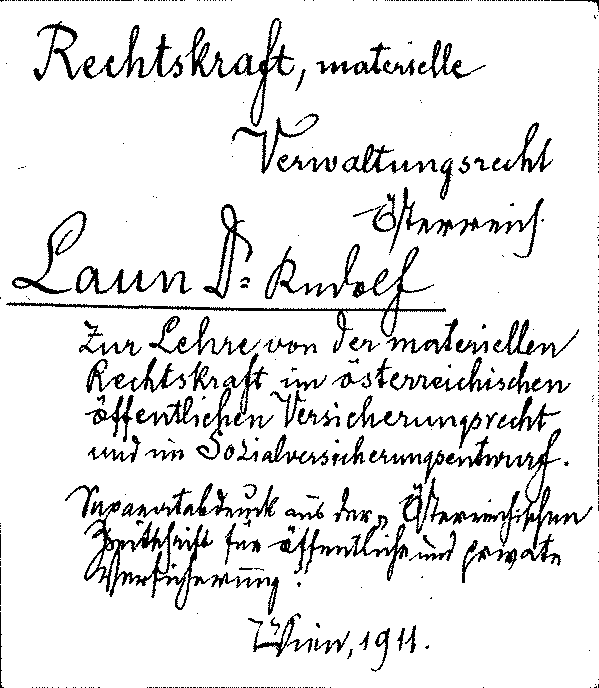 Rechtskraft, materielle
Verwaltungsrecht
Österreich.
Laun Dr. Rudolf
Zur Lehre von der materiellen
Rechtskraft im österreichischen
öffentlichen Versicherungsrecht
und im Sozialversicherungsentwurf.
Separatabdruck aus der „Österreichischen
Zeitschrift für öffentliche und private
Versicherung".
Wien, 1911.